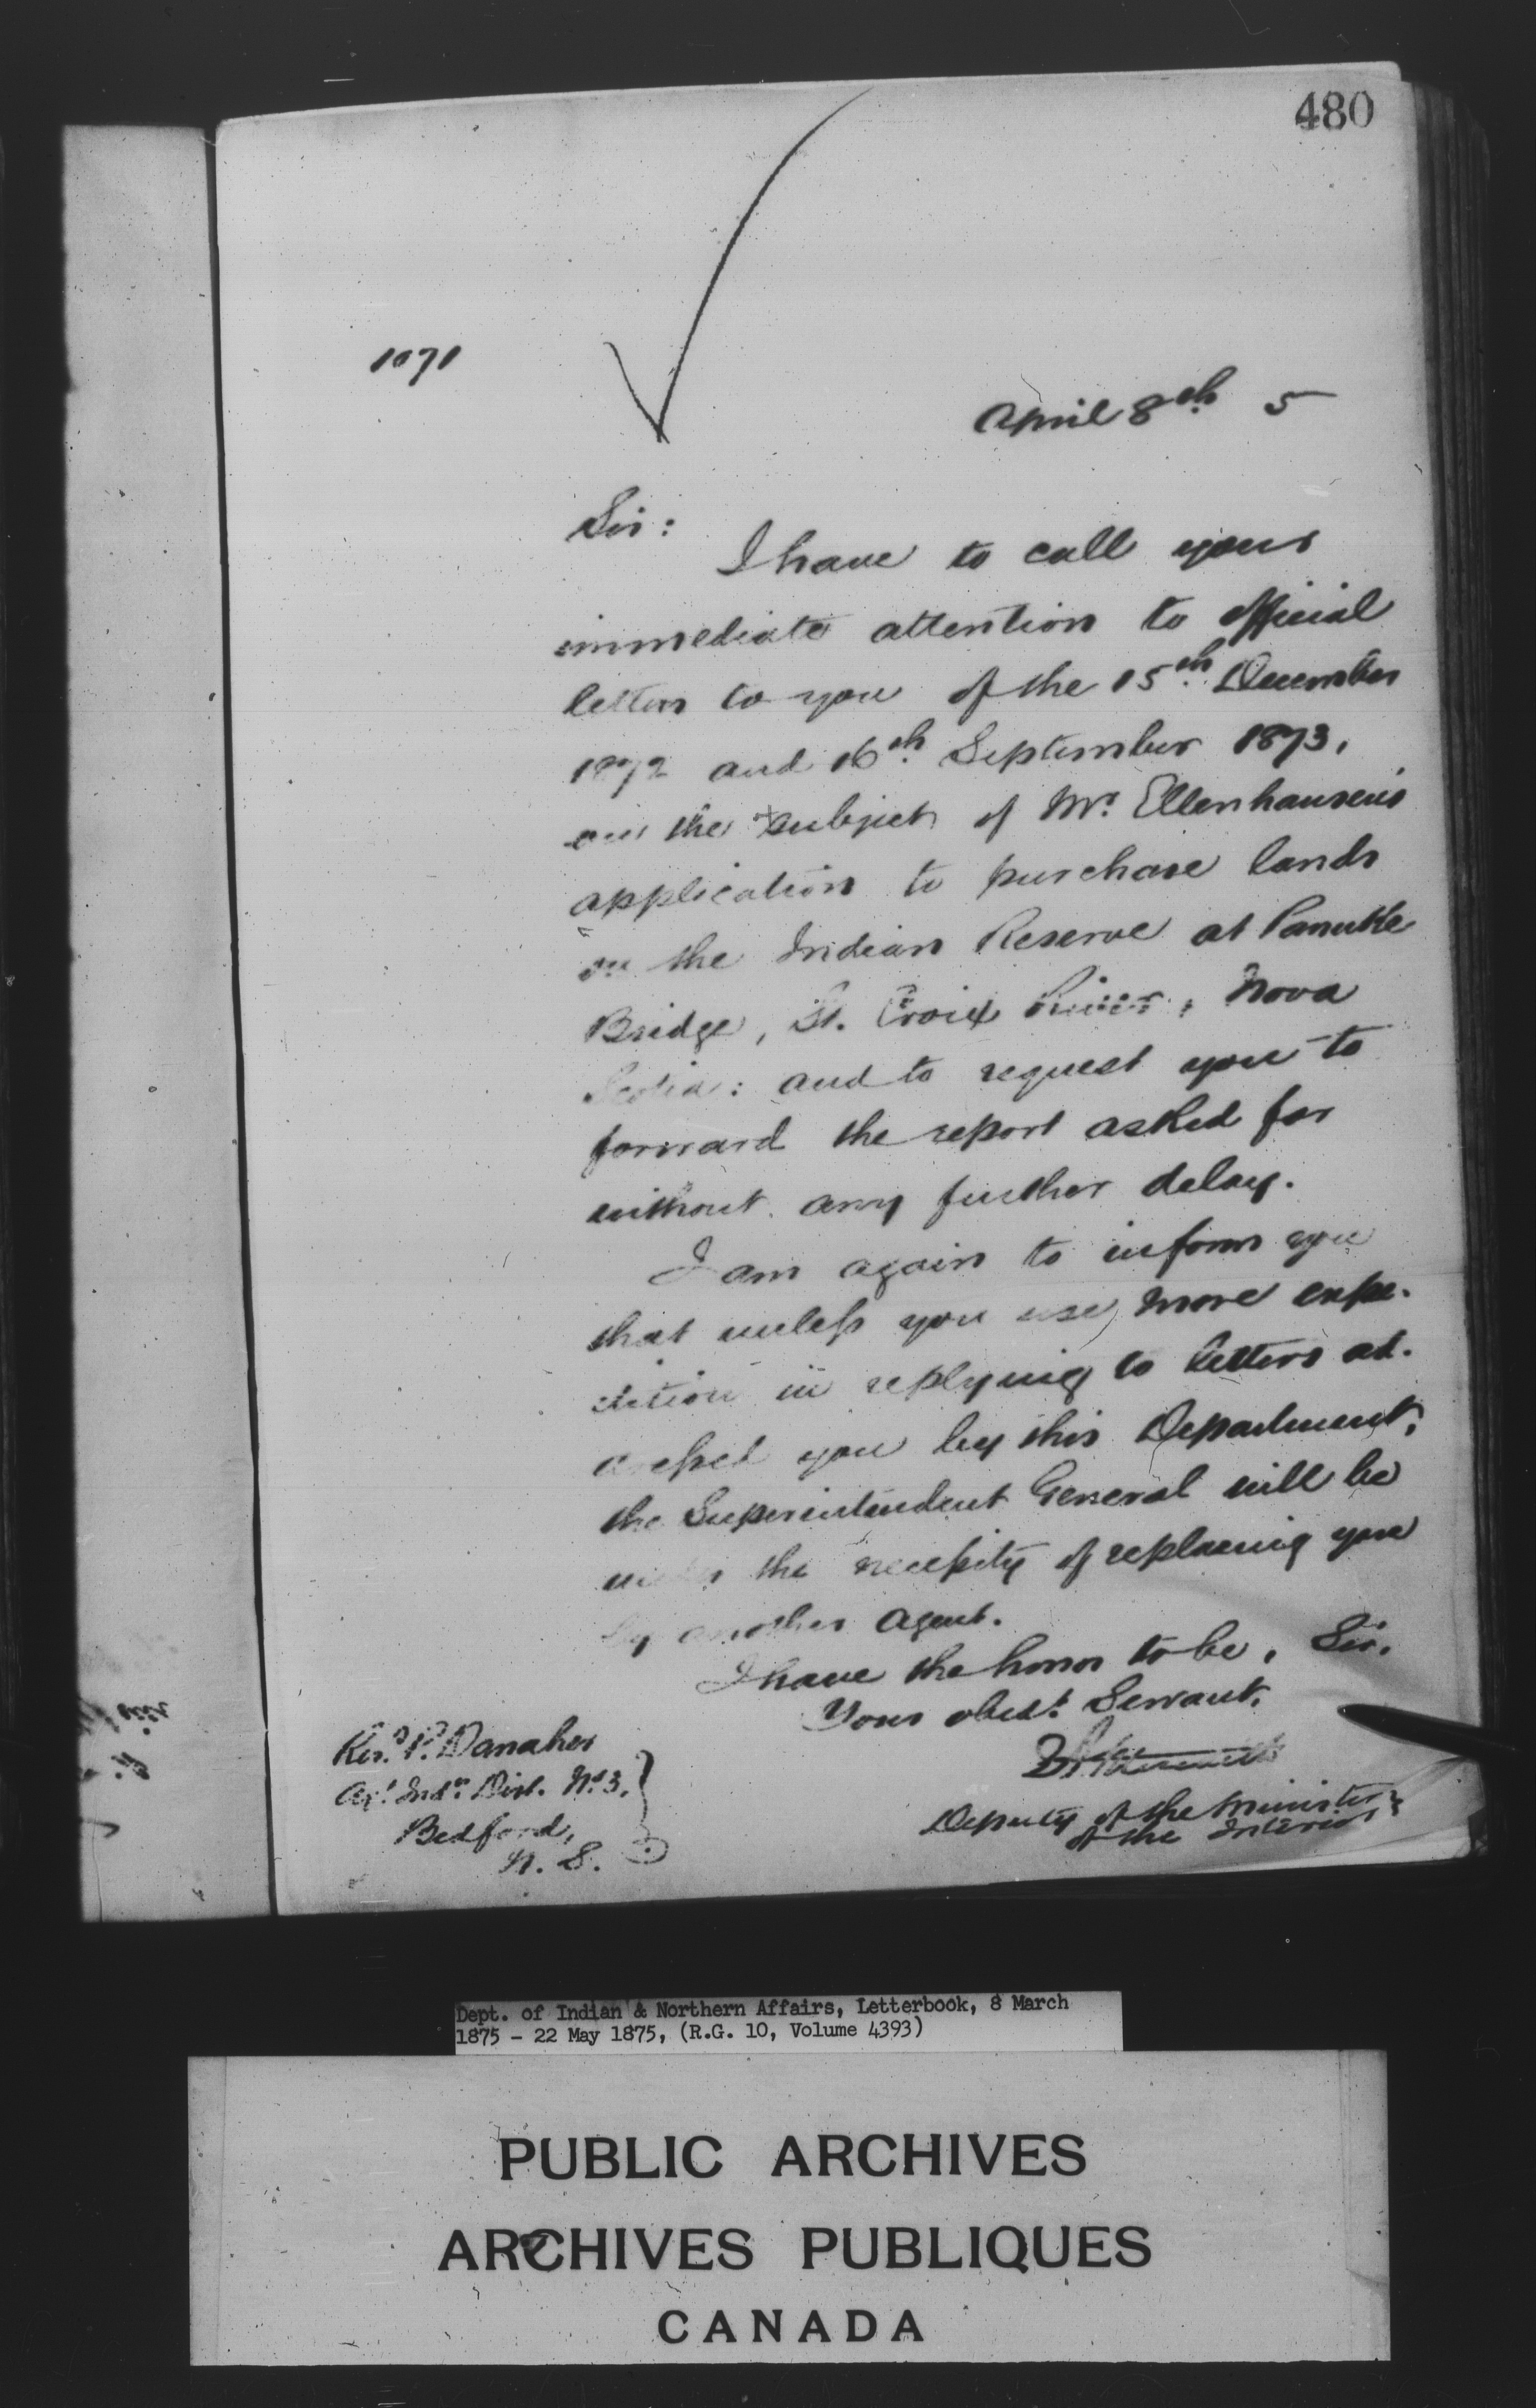 480
1071
April 8th. 5
Sir:
I have to call your
immediate attention to official
letters to you of the 15th. December
1872 and 16th. September 1873,
on the subject of Mr. Ellenhausen's
application to purchase lands
on the Indian Reserve at Panuke
Bridge, St. Croix River, Nova
Scotia: and to request you to
forward the report asked for
without any further delay.
I am again to inform you
that unless you use more expe-
dition in replying to letters ad-
dressed you by this Department,
the Superintendent General will be
under the necessity of replacing you
by another agent.
I have the honor to be, Sir,
Your obedt. Servant,
Deputy of the Minister
of the Interior
Revd. P. Danaher
Agt. Indn. Dist. No. 3,
Bedford,
N. S.
Dept. of Indian & Northern Affairs, Letterbook, 8 March
1875 - 22 May 1875, (R.G. 10, Volume 4393)
PUBLIC ARCHIVES
ARCHIVES PUBLIQUES
CANADA